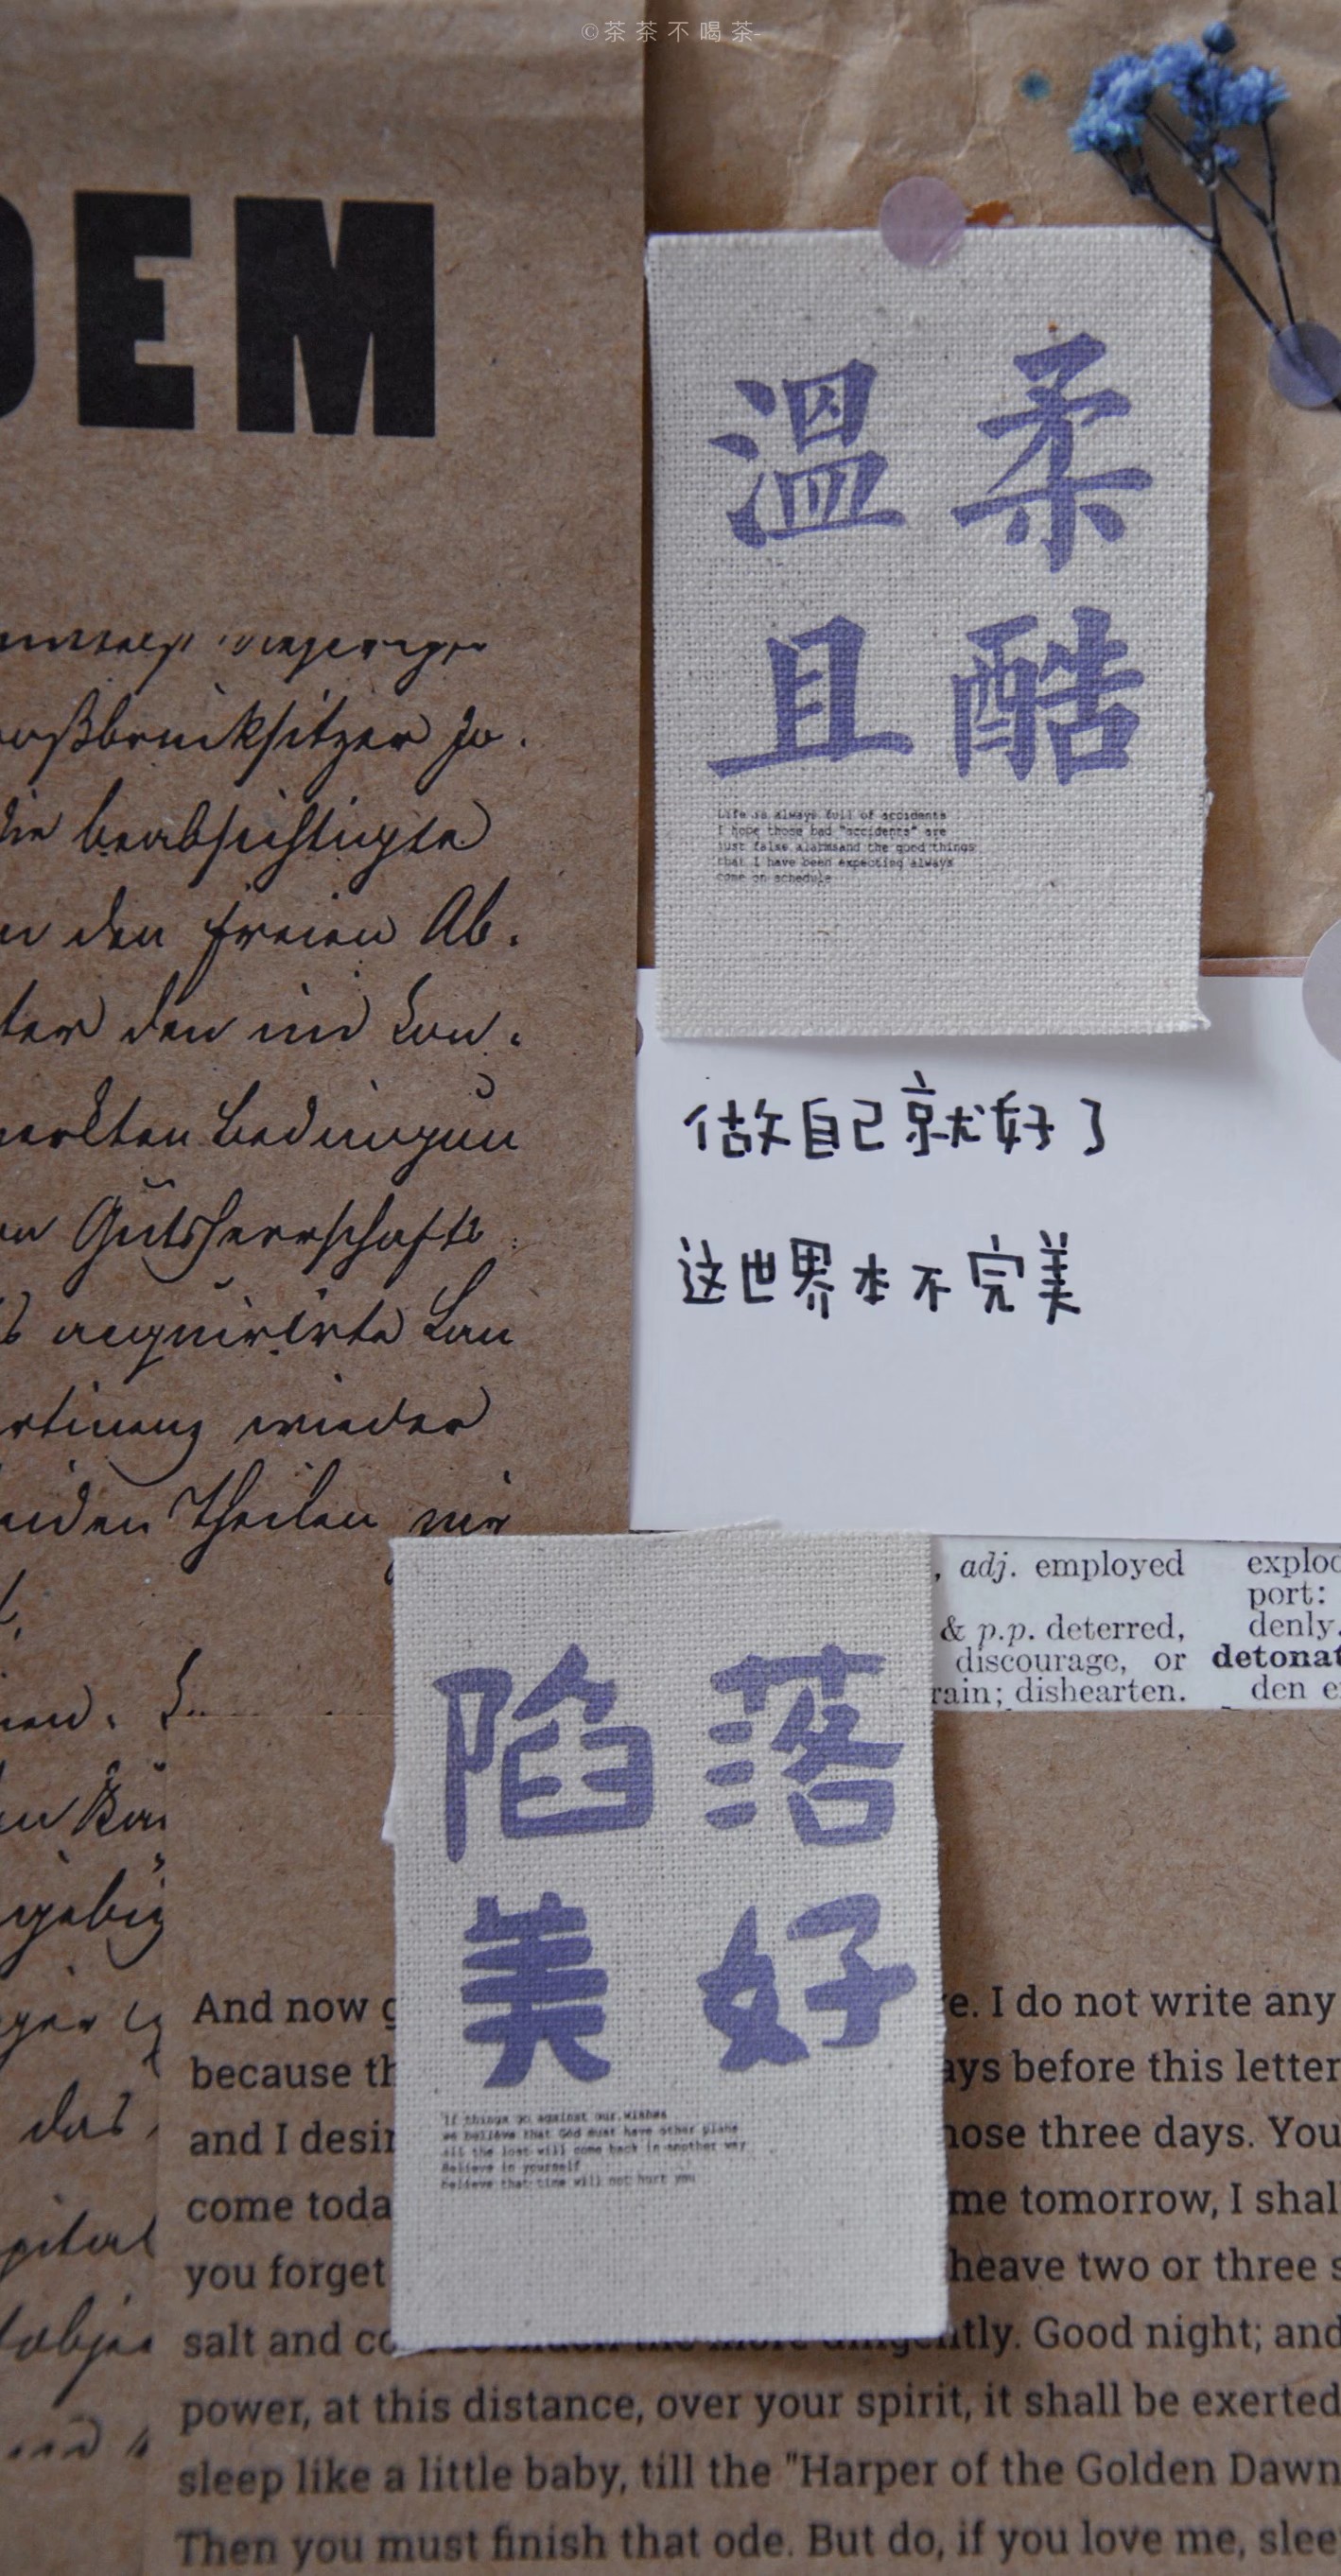 ©茶茶不喝茶-
OEM
温柔
且酷
Life is always full of accidents
I hope those bad "accidents" are
just false alarmsand the good things
that I have been expecting always
come on schedule
做自己就好了
这世界本不完美
den freien Ab.
ter den im Lau.
Bedingun
Gutsherrschaft
acquirirte Lau
wieder
beiden Theilen wir
, adj. employed
& p.p. deterred,
discourage, or
rain; dishearten.
explod
port:
denly.
detonat
den e
陷落
美好
If things go against our wishes
we believe that God must have other plans
all the lost will come back in another way
Believe in yourself
believe that time will not hurt you
das
And now g e. I do not write any
because th ays before this letter
and I desir hose three days. You
come toda me tomorrow, I shal
you forget heave two or three s
salt and co ntly. Good night; and
power, at this distance, over your spirit, it shall be exerted
sleep like a little baby, till the "Harper of the Golden Dawn
Then you must finish that ode. But do, if you love me, slee